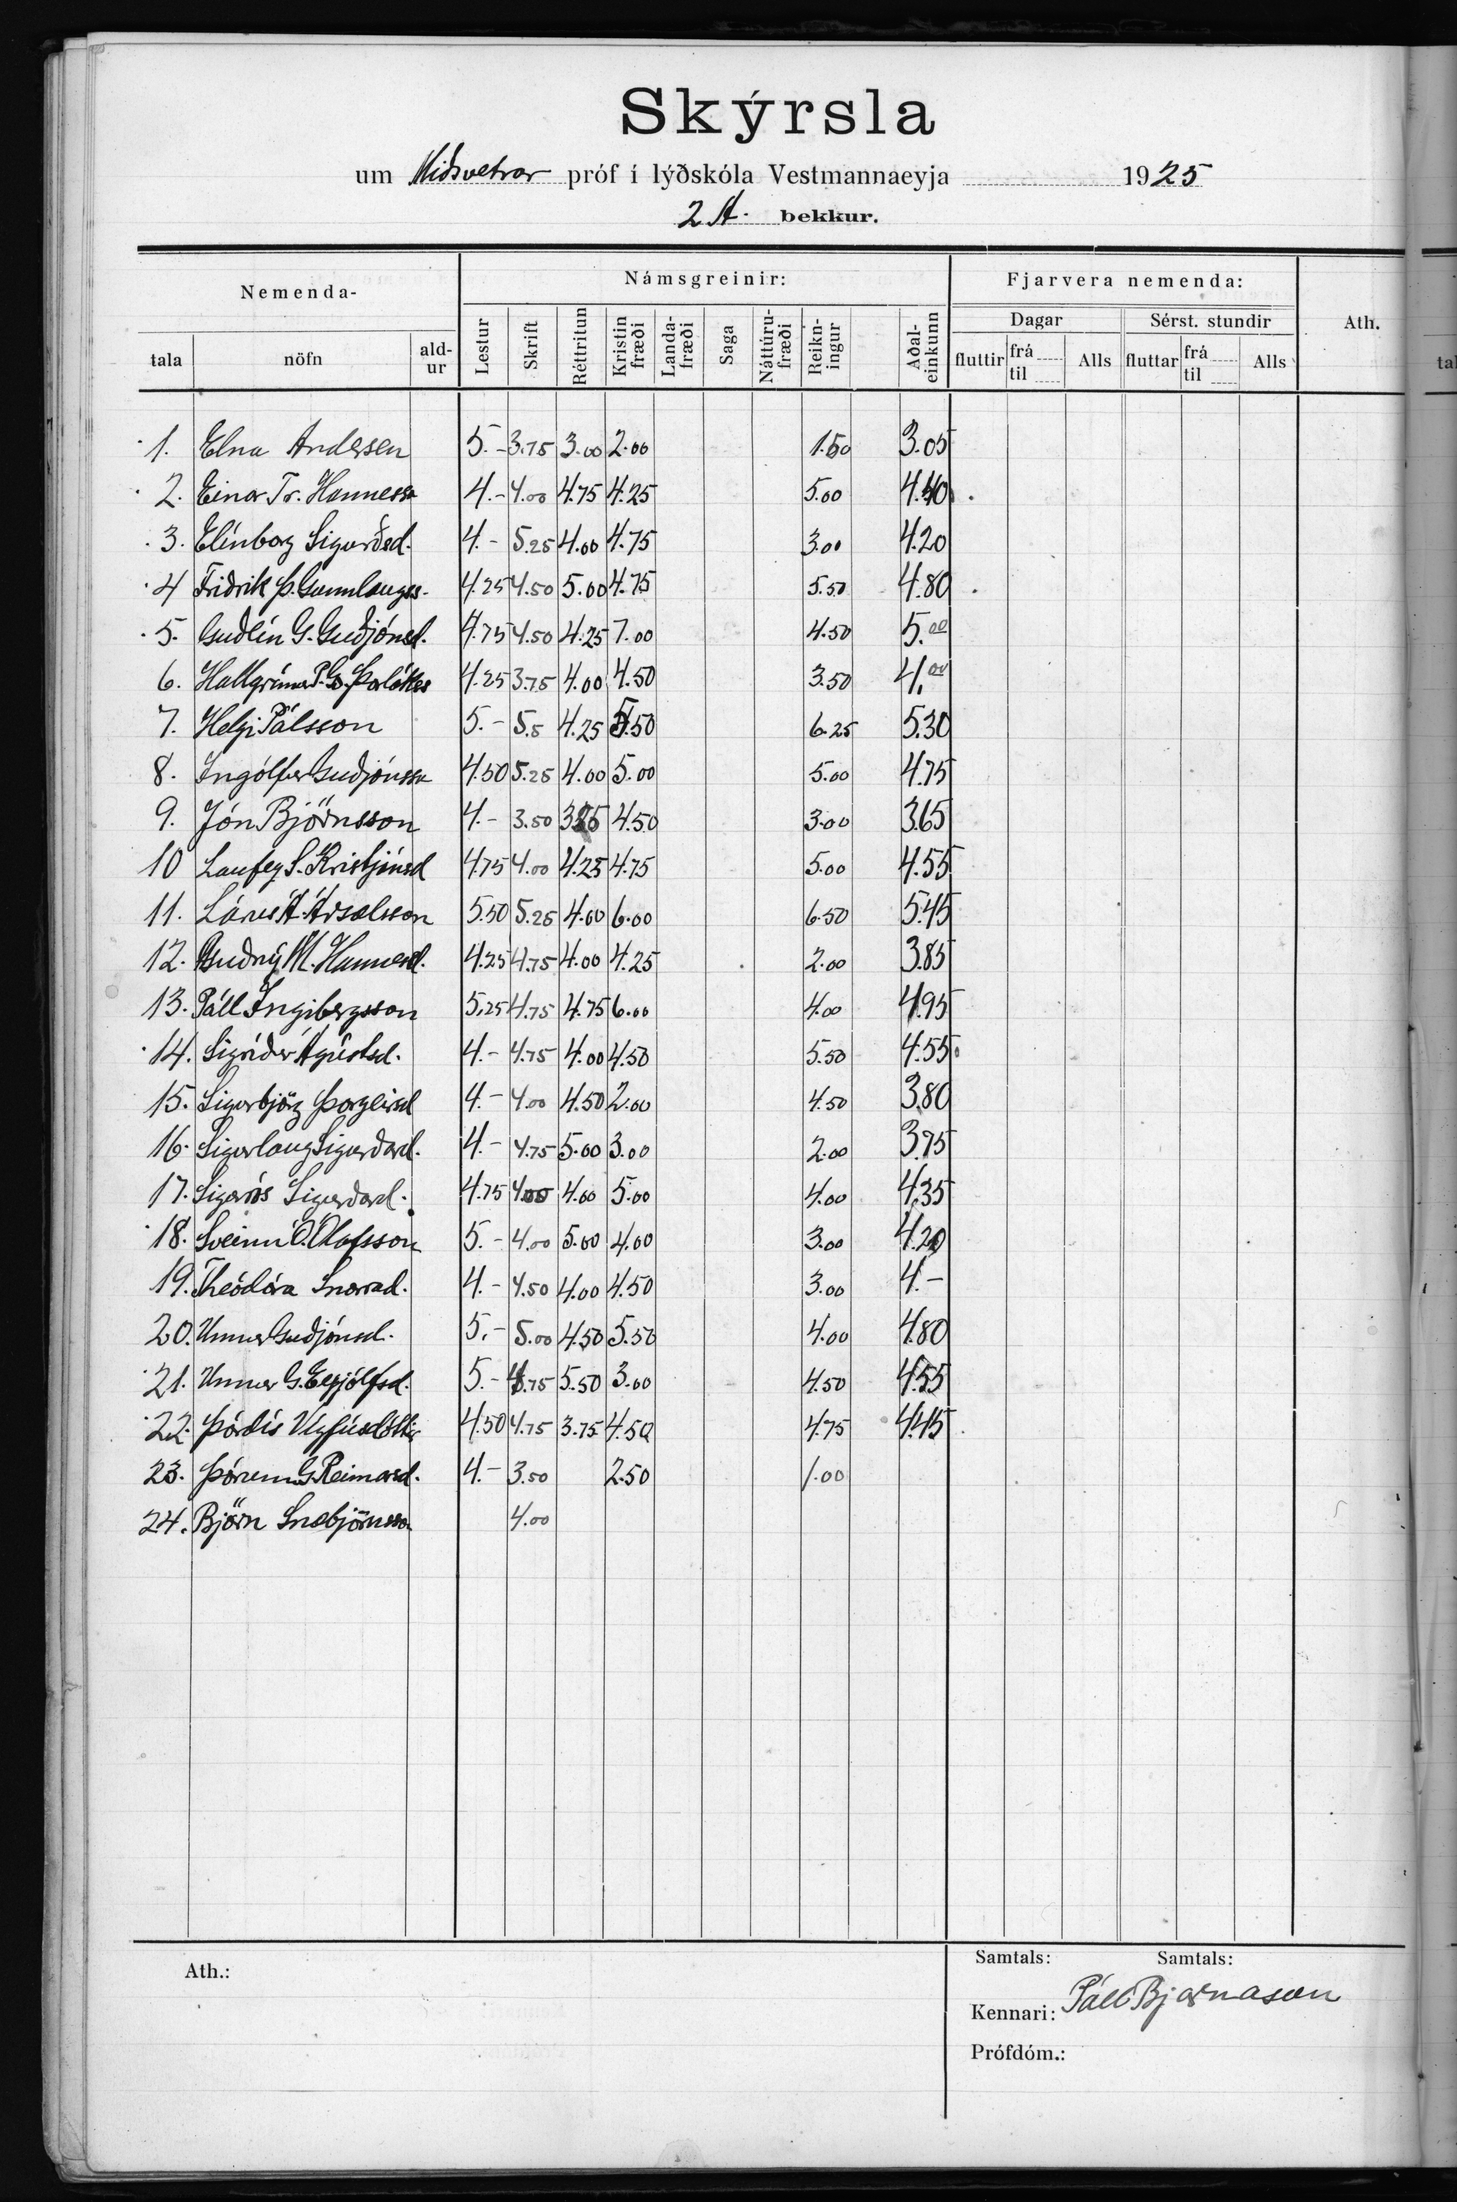 Skýrsla
um Miðsvetrar próf í lýðskóla Vestmannaeyja 1925
2 A. bekkur.
Nemenda- Námsgreinir: Fjarvera nemenda: Ath.
Dagar Sérst. stundir
tala nöfn ald-ur Lestur Skrift Réttritun Kristinfræði Landa-fræði Saga Náttúru-fræði Reikn-ingur Aðal-einkunn fluttir frá til Alls fluttar frá til Alls
1. Elna Andersen 5.- 3.75 3.00 2.00 1.50 3.05
2. Einar Tr. Hannesso 4.- 4.00 4.75 4.25 5.00 4.40
3. Elínborg Sigurðsd. 4.- 5.25 4.00 4.75 3.00 4.20
4 Friðrik Þ. Gunnlaugss. 4.25 4.50 5.00 4.75 5.50 4.80
5. Guðlín G. Guðjónsd. 4.75 4.50 4.25 7.00 4.50 5.00
6. Hallgrímur P. G. Þorlákss 4.25 3.75 4.00 4.50 3.50 4.00
7. Helgi Pálsson 5.- 5.5 4.25 5.50 6.25 5.30
8. Ingólfur Guðjónsso 4.50 5.25 4.00 5.00 5.00 4.75
9. Jón Björnsson 4.- 3.50 3.25 4.50 3.00 3.65
10 Laufey S. Kristjánsd 4.75 4.00 4.25 4.75 5.00 4.55
11. Lárus Á. Ársælsson 5.50 5.25 4.00 6.00 6.50 5.45
12. Guðný M. Hannesd. 4.25 4.75 4.00 4.25 2.00 3.85
13. Páll Ingibergsson 5.25 4.75 4.75 6.00 4.00 4.95
14. Sigríður Ágústsd. 4.- 4.75 4.00 4.50 5.50 4.55
15. Sigurbjörg Þorgeirsd 4.- 4.00 4.50 2.00 4.50 3.80
16. Sigurlaug Sigurðard. 4.- 4.75 5.00 3.00 2.00 3.75
17. Sigurrós Sigurðard. 4.75 4.00 4.00 5.00 4.00 4.35
18. Sveinn Ó. Ólafsson 5.- 4.00 5.00 4.00 3.00 4.20
19. Theódóra Snorrad. 4.- 4.50 4.00 4.50 3.00 4.-
20. Unnur Guðjónsd. 5.- 5.00 4.50 5.50 4.00 4.80
21. Unnur G. Eyjólfsd. 5.- 4.75 5.50 3.00 4.50 4.55
22. Þórdís Vigfúsdóttir 4.50 4.75 3.75 4.50 4.75 4.45
23. Þórunn G. Reimarsd. 4.- 3.50 2.50 1.00
24. Björn Snæbjörnsson 4.00
Ath.: Samtals: Samtals:
Kennari: Páll Bjarnason
Prófdóm.:
tal